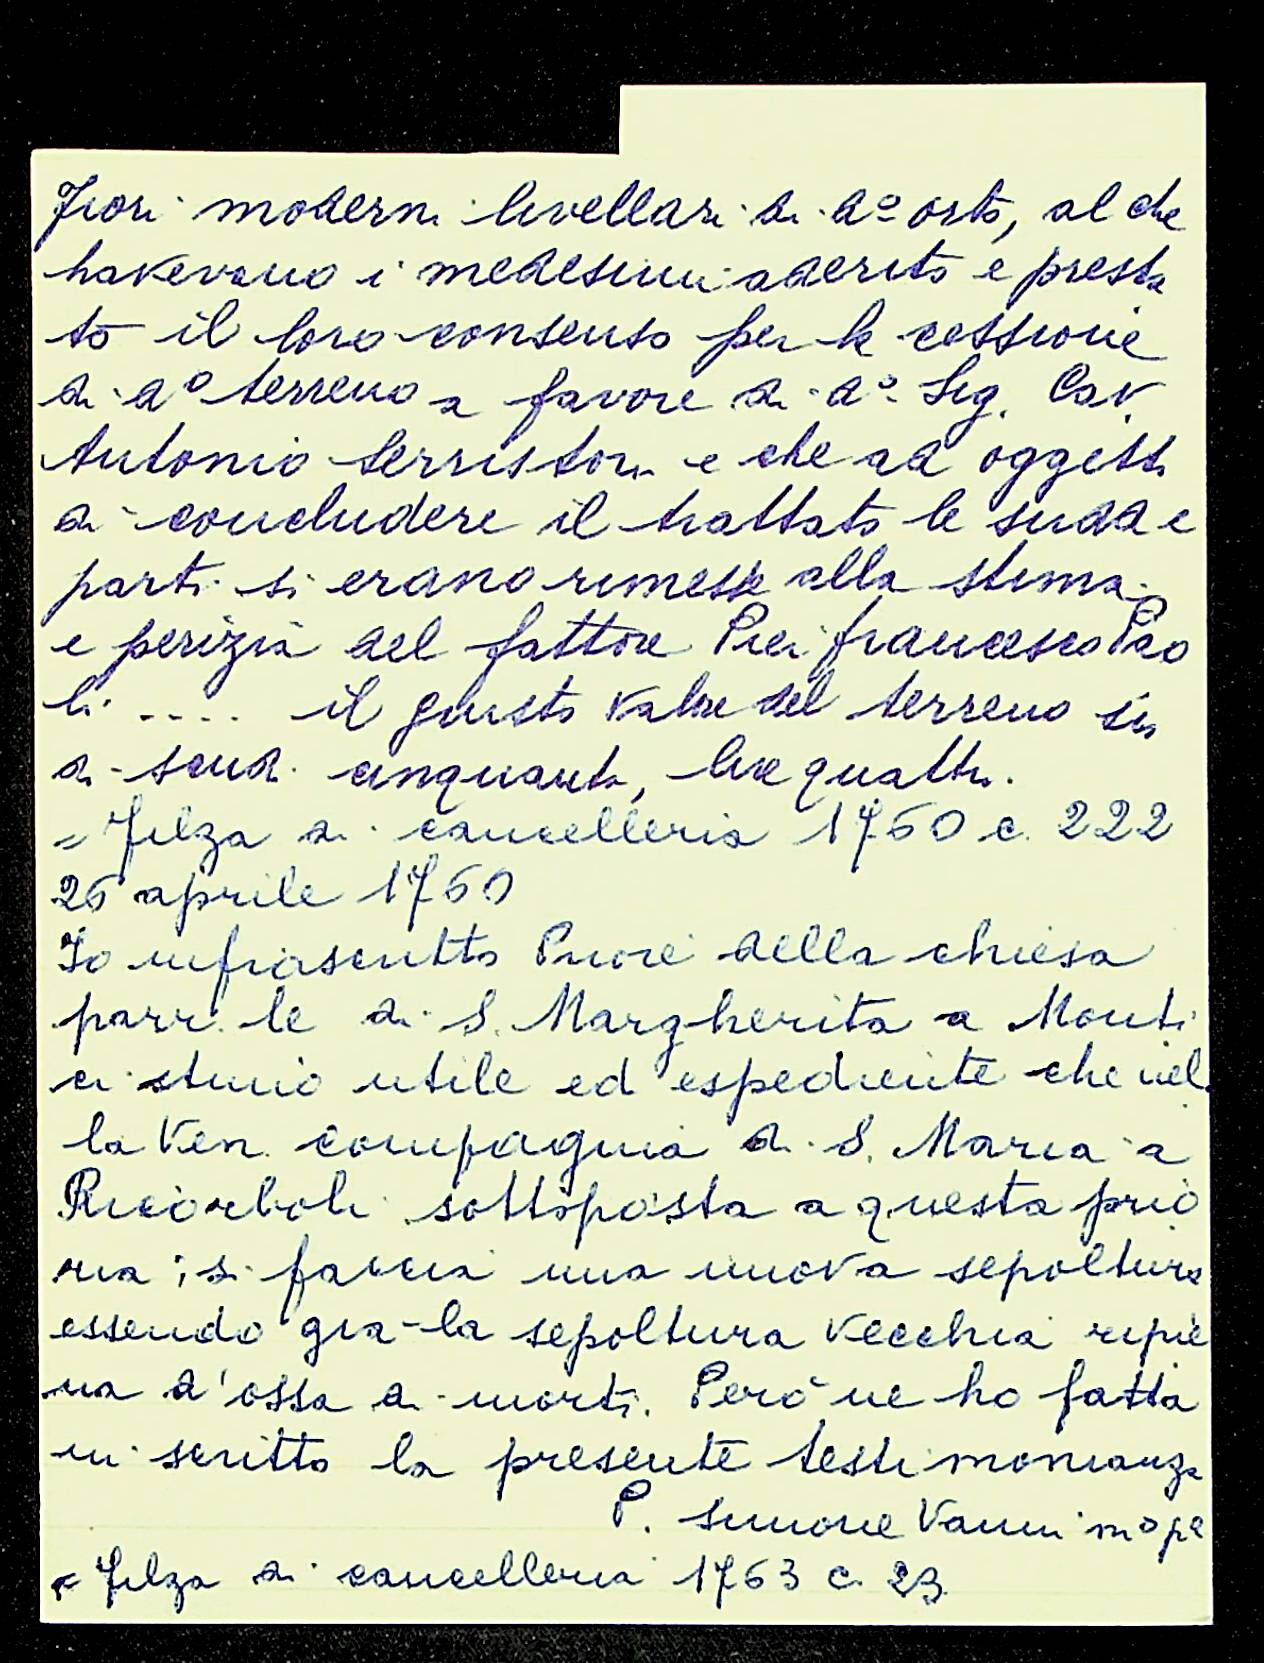 Fiori moderni livellari di do orto, al che
hakevano i medesimi aderito e presta
to il loro consenso per la cessione
di do terreno a favore di do Sig. Cav.
Antonio Serristori e che ad oggetto
di concludere il trattato le sudde
parti si erano rimesse alla stima
e perizia del fattore Pier francesco Pao
li .... il giusto valore del terreno sia
di scudi cinquanta, lire quattro.
= Filza di cancelleria 1760 c. 222
26 aprile 1760
Io infrascritto Priore della chiesa
parr.le di S. Margherita a Monti
ci stimo utile ed espediente che nel
la Ven. compagnia di S. Maria a
Ricorboli sottoposta a questa prio
ria; si faccia una nuova sepoltura
essendo già la sepoltura vecchia ripie
na d'ossa di morti. Però ne ho fatta
in scritto la presente testimonianza
P. Simone Vanni mo pa
= Filza di cancelleria 1763 c. 23